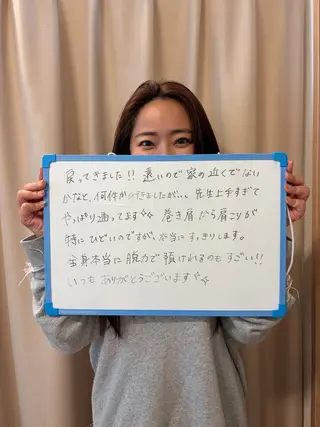 戻ってきました!! 遠いので家の近くでない
かなと、何件か行きましたが、、先生上手すぎて
やっぱり通ってます✧✧ 巻き肩から肩こりが
特にひどいのですが、本当にすっきりします。
全身本当に脱力で頂けれるのもすごい!!
いつもありがとうございます✧✧